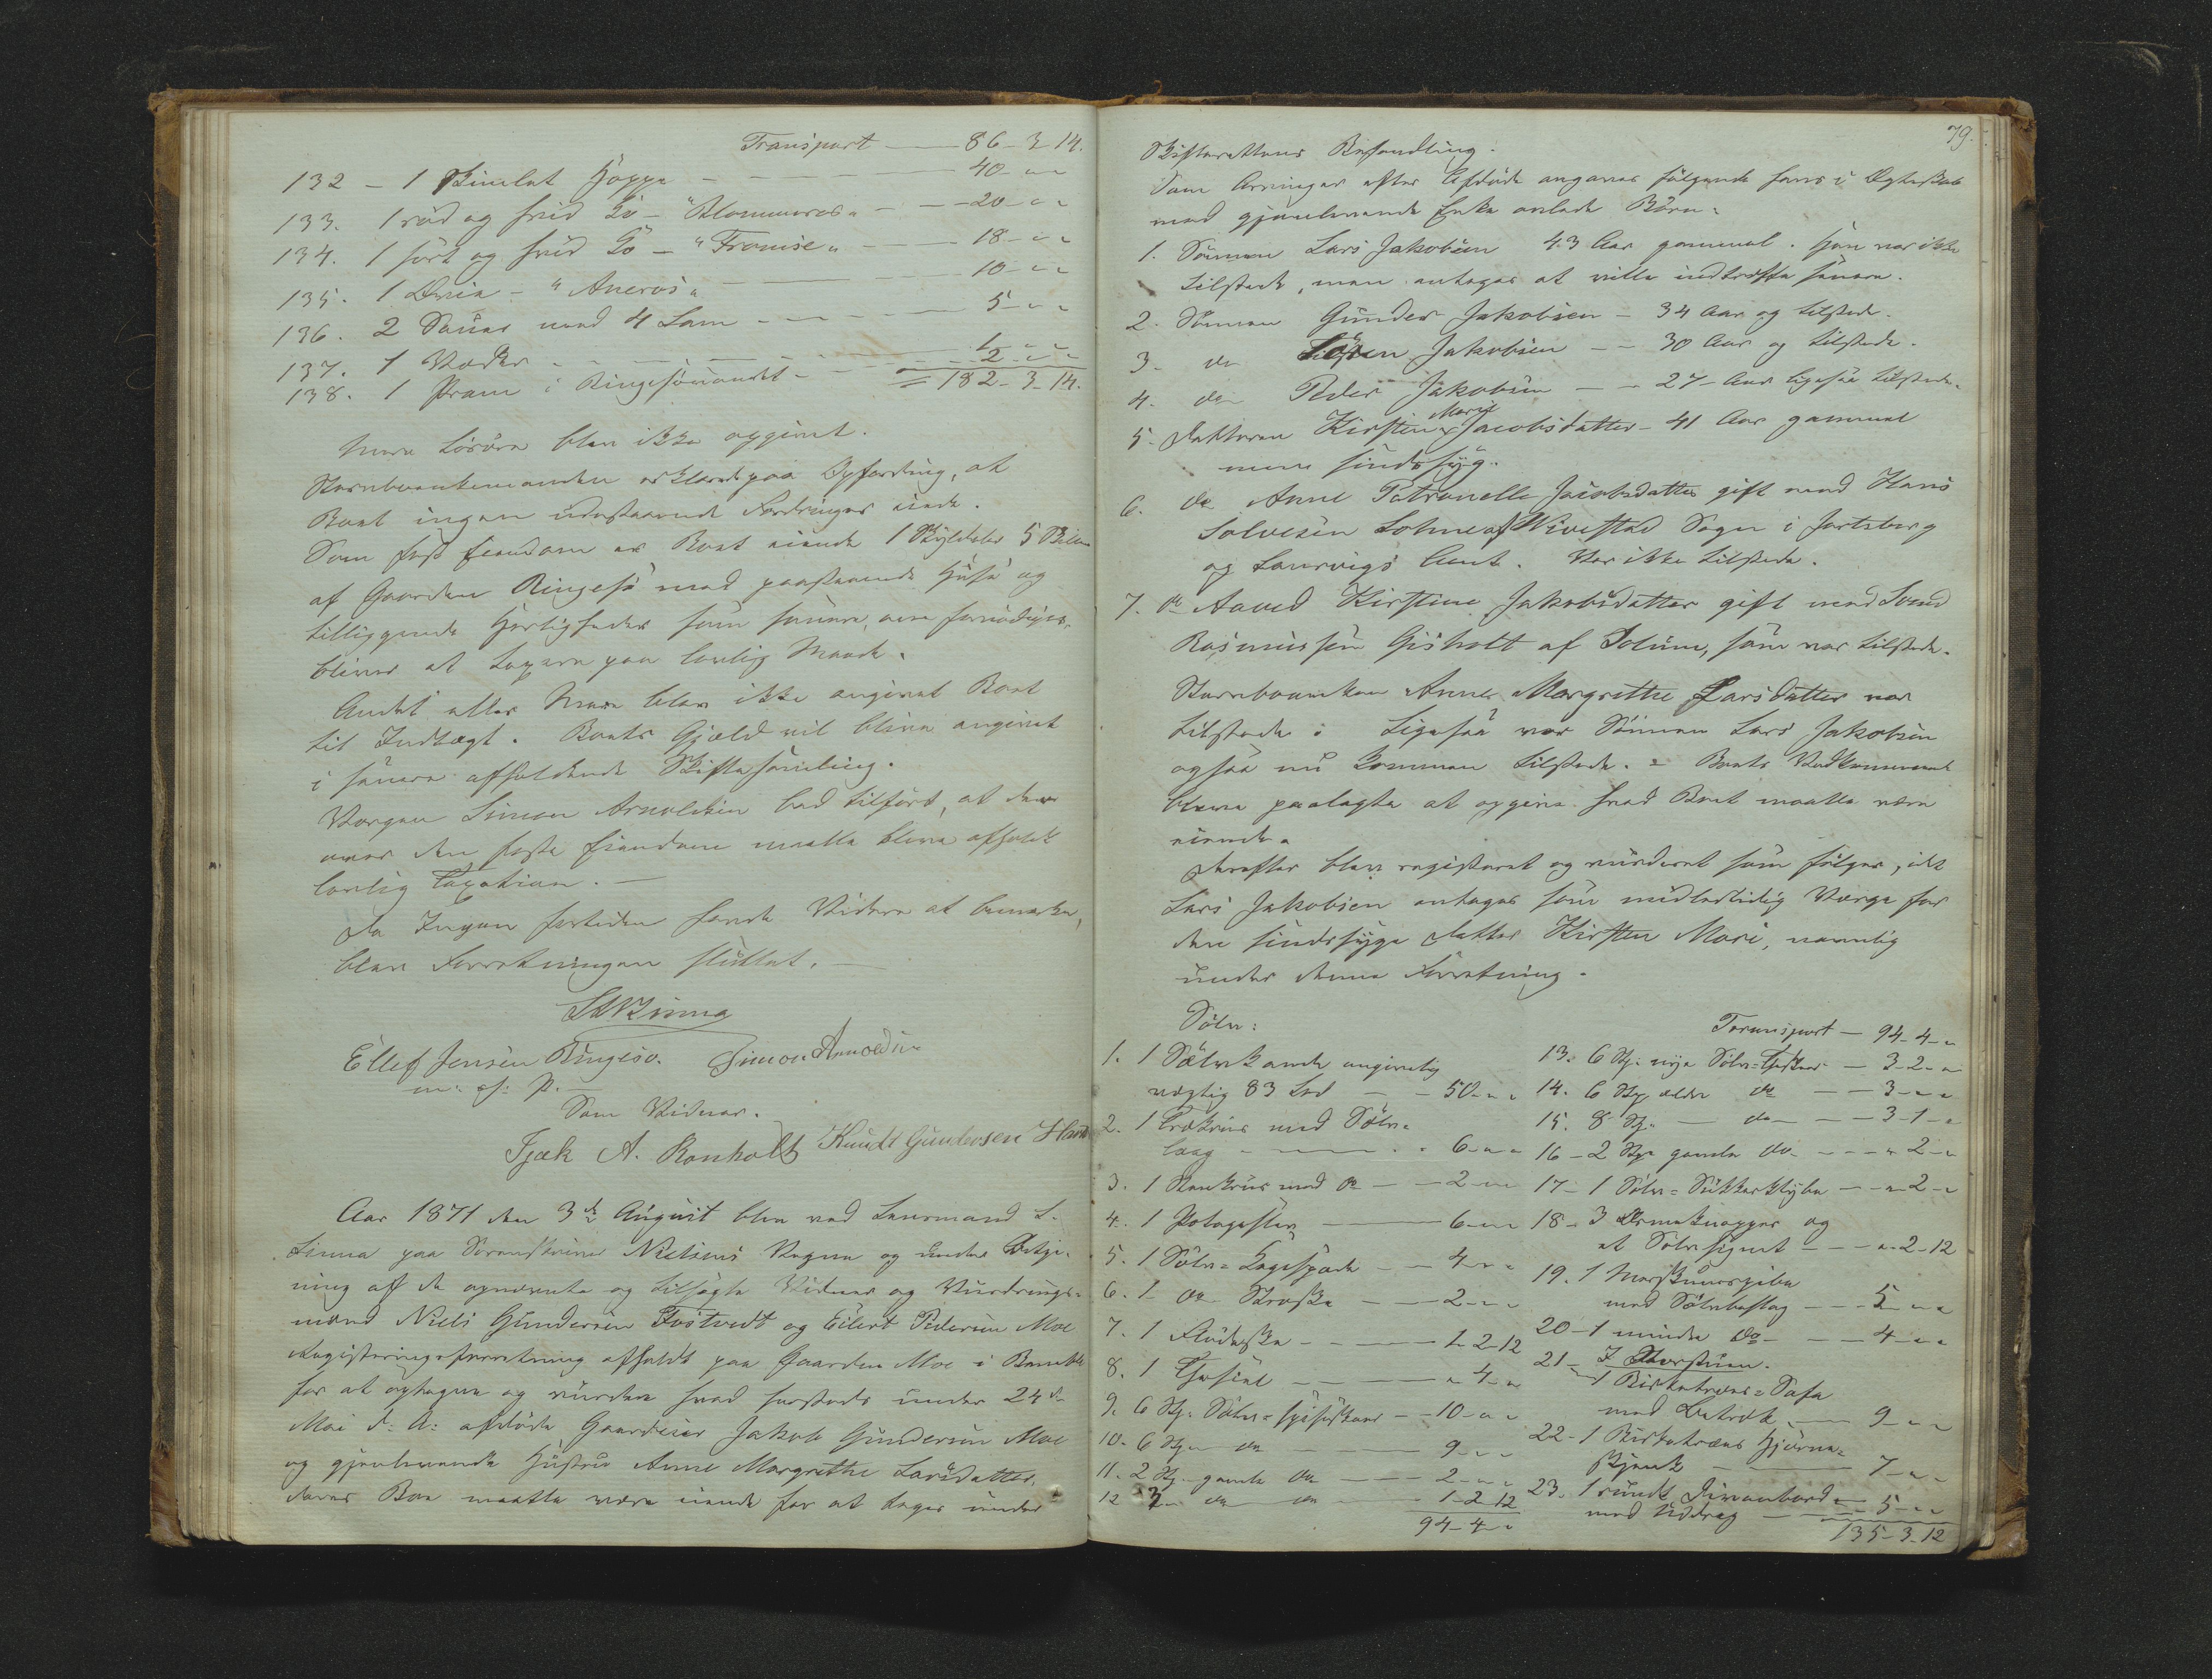 Transport — 86-3-14.
132 - 1 Skimlet Hoppe — 40 - " "
133. 1 röd og hvid Ko - "Blommeros" — 20 - " "
134. 1 sort og hvid Ko - "Fromise" — 18 - " "
135. 1 Qvie - "Aneros" — 10 - " "
136. 2 Sauer med 4 Lam — 5 - " "
137. 1 Væder — 1 - " "
138. 1 Pram i Ringesövandet — 2 - " "
= 182-3-14.
Mere Lösöre blev ikke opgivet.
Stervboenkemanden erklærede paa Opfordring, at
Boet ingen udestaaende Fordringer eiede.
Som fast Eiendom er Boet eiende 1 Skyldaler 5 Skill
af Gaarden Ringesö med paastaaende Huse og
tilliggende Herligheder som senere, om fornödiges,
bliver at taxere paa lovlig Maade.
Andet eller Mere blev ikke angivet Boet
til Indtægt. Boets Gjæld vil blive angivet
i senere afholdende Skiftesamling.
Værgen Simon Arnoldsen bad tilfört, at der
over den faste Eiendom maatte blive afholdt
lovlig Taxation. —
Da Ingen fortiden havde Videre at bemærke,
blev Forretningen sluttet. —
Ellef Jensen Ringesö. Simon Arnoldsen
m. f. P.
Som Vidner.
Isak A. Ronholt Knudt Gundersen
Aar 1871 den 3de August blev ved Lensmand L.
Linna paa Sorenskriver Nielsens Vegne og under Betje-
ning af de opnævnte og tilsagte Vidner og Vurderings-
mænd Niels Gundersen Tostvedt og Eilert Pedersen Moe
Registreringsforretning afholdt paa Gaarden Moe i Bamble
for at optegne og vurdere hvad hersteds under 24de
Mai d. A. afdöde Gaardeier Jakob Gundersen Moe
og gjenlevende Hustru Anne Margrethe Larsdatter,
deres Boe maatte være eiende for at tages under
79.
Skifterettens Behandling.
Som Arvinger efter Afdöde angaves fölgende hans i Ægteskab
med gjenlevende Enke avlede Börn:
1. Sönnen Lars Jakobsen 43 Aar gammel. Han var ikke
tilstede, men antages at ville indtræffe senere.
2. Sönnen Gunder Jakobsen — 34 Aar og tilstede.
3. do Sören Jakobsen — 30 Aar og tilstede.
4. do Peder Jakobsen — 27 Aar ligesaa tilstede.
5. Datteren Kirstine Marie Jacobsdatter - 41 Aar gammel
men sindssyg.
6. do Anne Petronelle Jacobsdatter gift med Hans
Solvesen Lohne af Hivestad Sogn i Jarlsberg
og Laurvigs Amt. Var ikke tilstede.
7. do Aaved Kirstine Jakobsdatter gift med Svend
Rasmussen Gisholt af Solum, som var tilstede.
Stervboenken Anne Margrethe Larsdatter var
tilstede. Ligesaa var Sönnen Lars Jakobsen
ogsaa nu kommen tilstede. — Boets Vedkommende
bleve paalagte at opgive hvad Boet maatte være
eiende.
Derefter blev registeret og vurderet som fölger, idet
Lars Jakobsen antages som midlertidig Værge for
den sindssyge Datter Kirsten Mari, nemlig
under denne Forretning.
Sölv:
1. 1 Sölvkande angivelig
vægtig 83 Lod — 50 - " "
2. 1 Trækrus med Sölv-
laag — 6 - " "
3. 1 Stenkrus med do — 2 - " "
4. 1 Potageslev — 6 - " "
5. 1 Sölv-Kagespade — 4 - " "
6. 1 do Strøske — 2 - " "
7. 1 Flödeske — 1-2-12
8. 1 Thesiel — " 4 - "
9. 6 Stk. Sölv-Spiseskeer — 10 - " "
10. 6 Stk. do — 9 - " "
11. 2 Stk. gamle do — 2 - " "
12 3 do do 1-2-12
94-4-"
Transport — 94-4-"
13. 6 Stk. nye Sölv-Theskeer — 3-2-"
14. 6 Stk. ældre do — 3 - " "
15. 8 Stk. — do — 3-1-"
16 - 2 Stk. gamle do — " 2 - "
17 - 1 Sölv-Sukkerklype — " 2 - "
18 - 3 Ærmeknapper og
et Sölvsignet — " 2-12
19. 1 Merskumspibe
med Sölvbeslag — 5 - " "
20 - 1 mindre do — 4 - " "
I Storstuen.
21 - 1 Birketræes-Sofa
med Betræk — 9 - " "
22 - 1 Birketræes Hjörne-
skjenk — 7 - " "
23. 1 rundt Divanbord
med Uddrag — 5 - " "
135-3-12